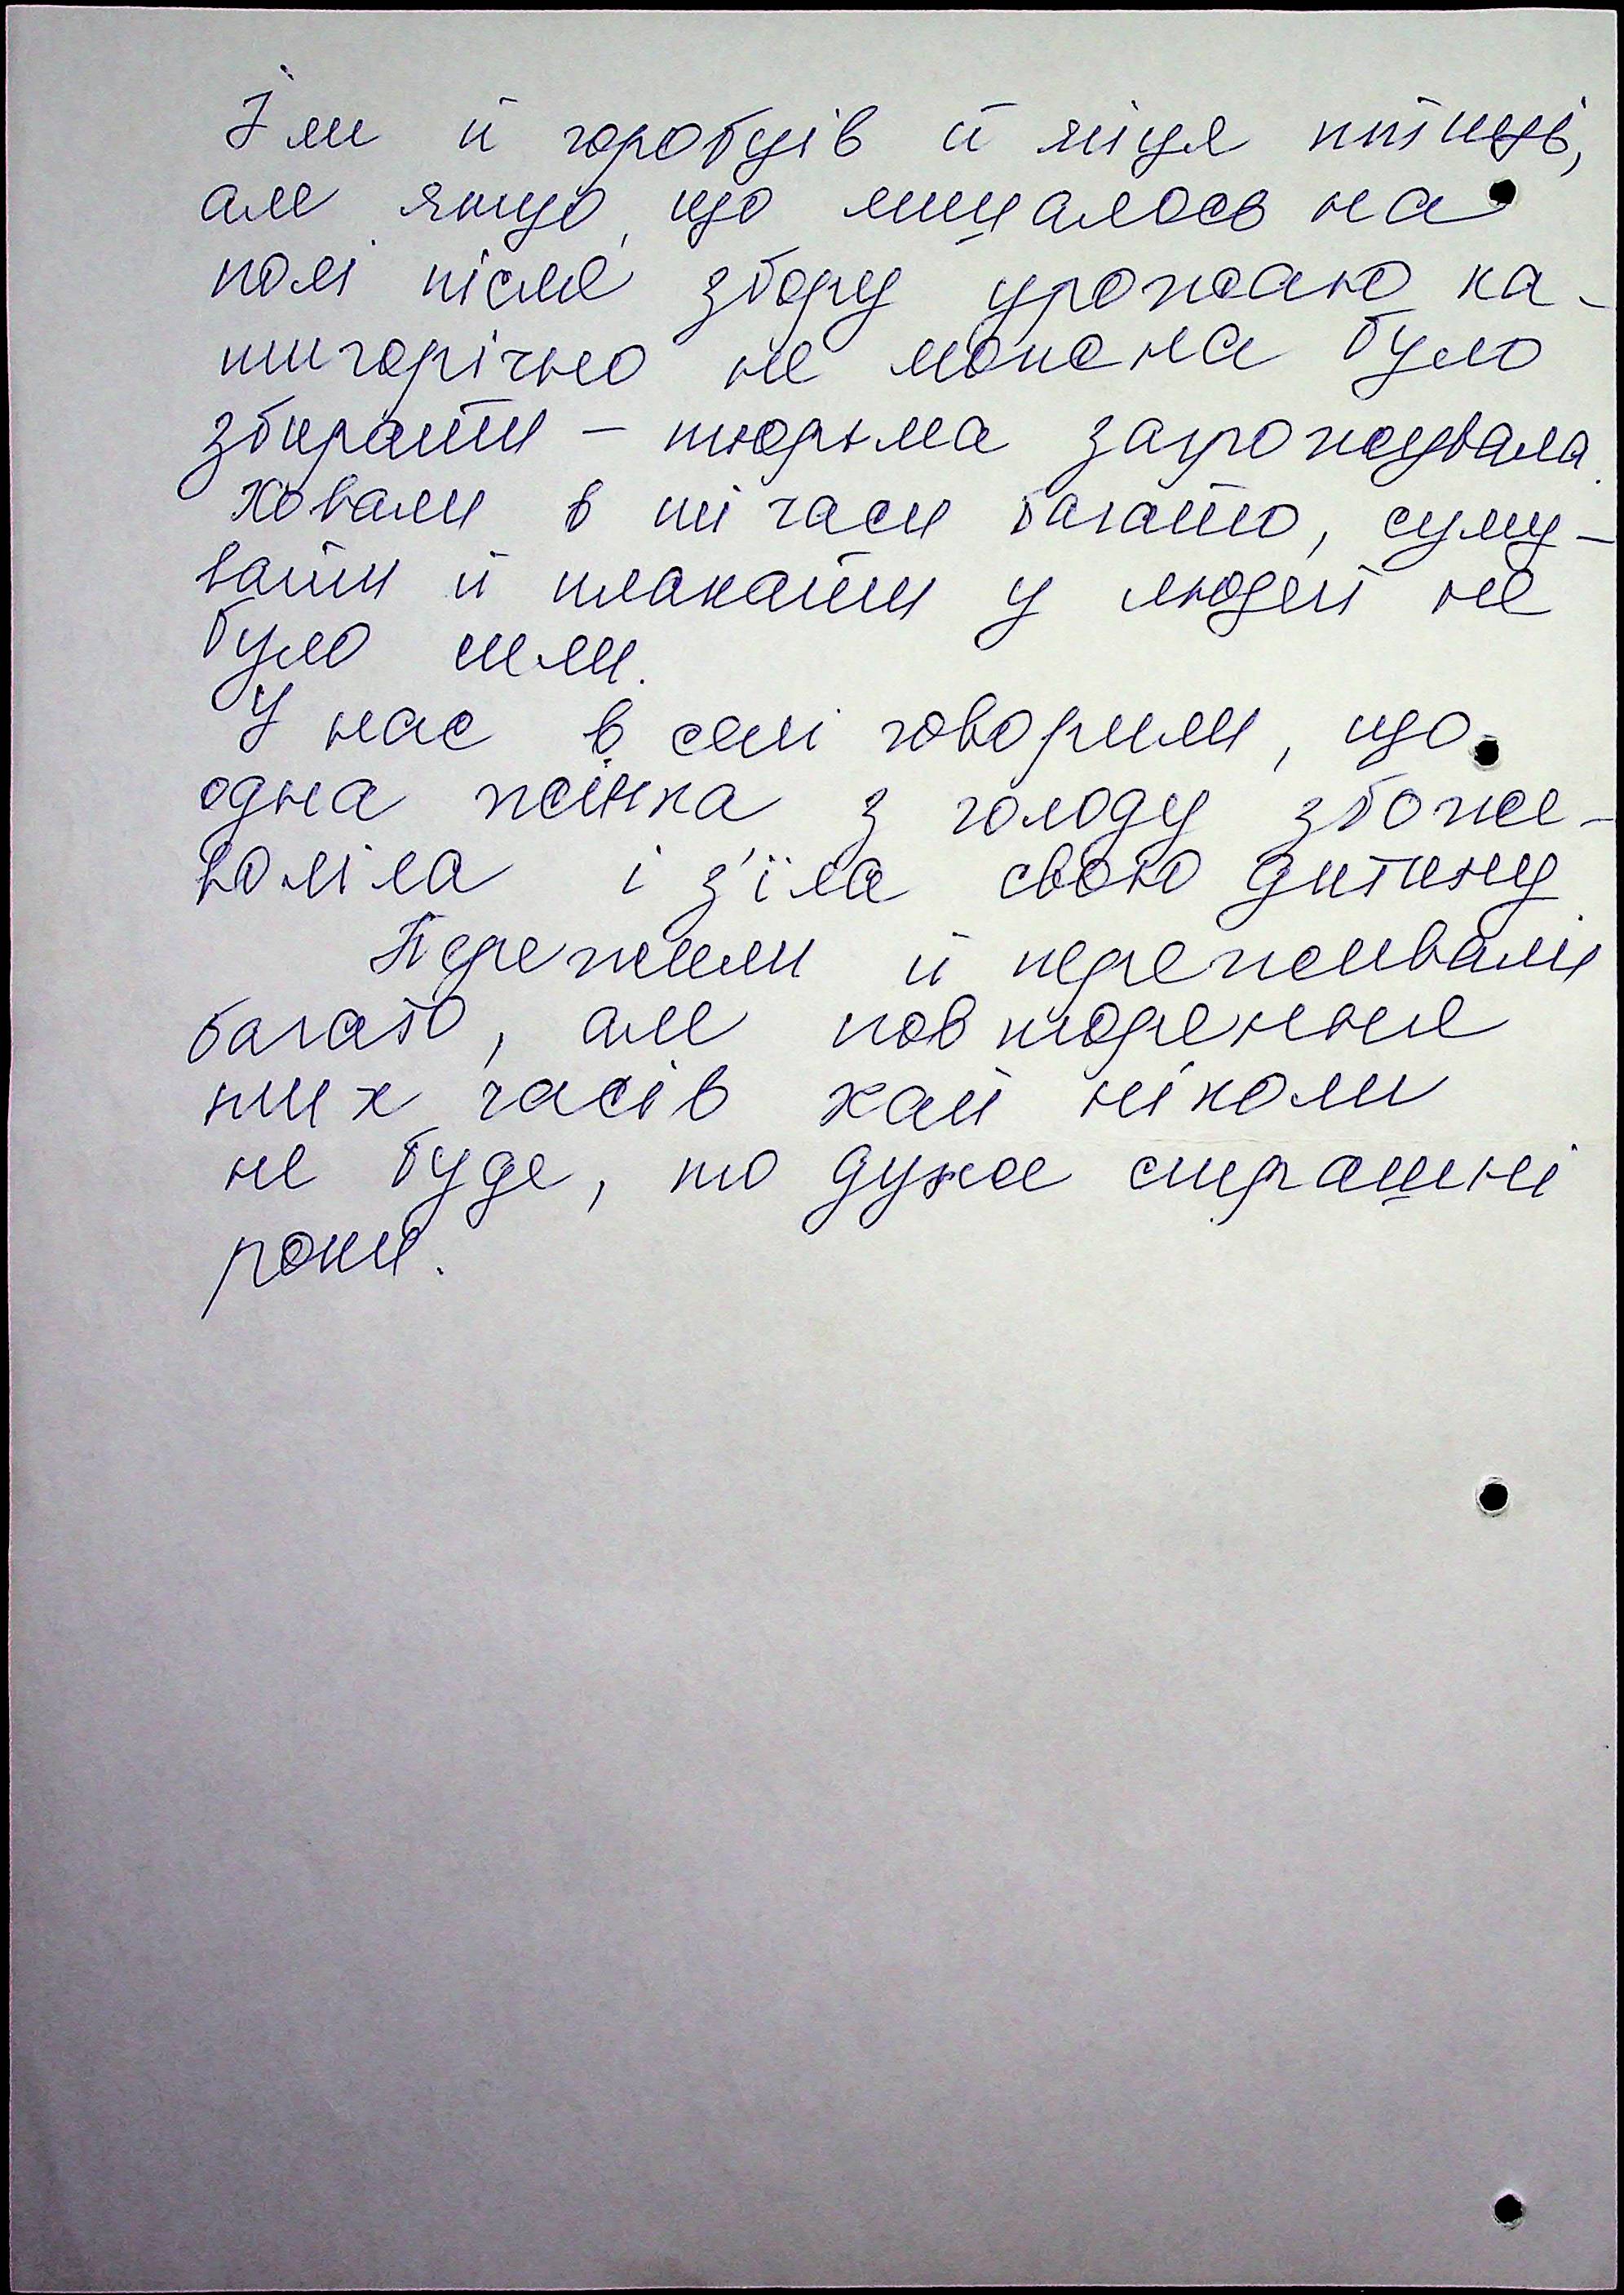 Їли й горобців й яйця птиці,
але якщо, що лишалось на
полі після збору урожаю ка-
тигорічно не можна було
збирати – тюрьма загрожувала.
Ховали в ті часи багато, суму-
вати й плакати у людей не
було сили.
У нас в селі говорили, що
одна жінка з голоду збоже-
воліла і з'їла свою дитину
Пережили й переживали
багато, але повторення
тих часів хай ніколи
не буде, то дуже страшні
роки.